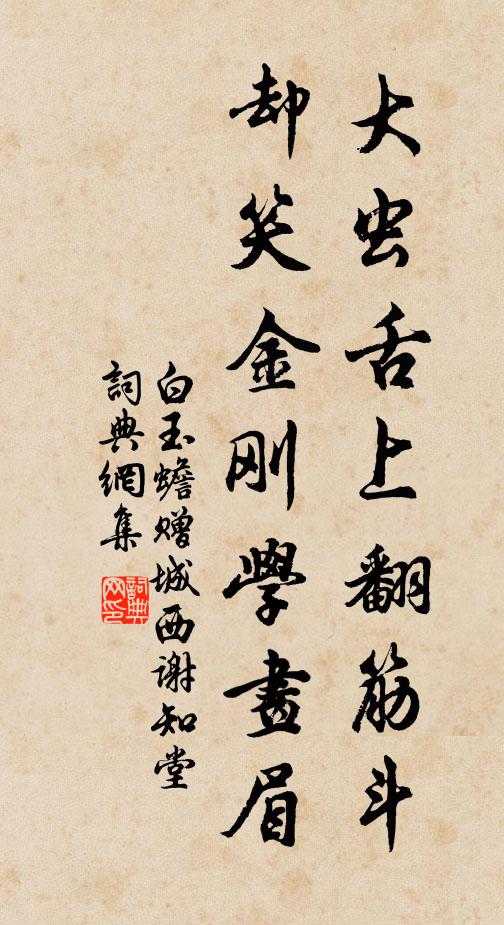 大虫舌上翻筋斗
却笑金刚學畫眉
白玉蟾赠城西谢知堂
詞典網集
詞典网印